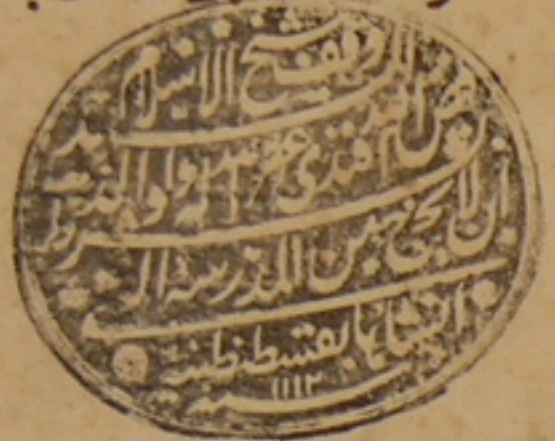 وقف شيخ الاسلام
السيد فيض الله
افندى غفر الله له ولوالديه
بشرط ان لا يخرج من المدرسة التى
انشاها بقسطنطنية
سنة ١١١٢